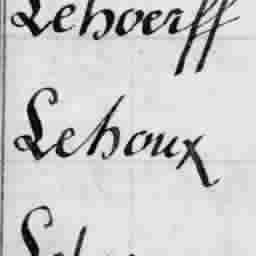 Lehoerff
Lehoux